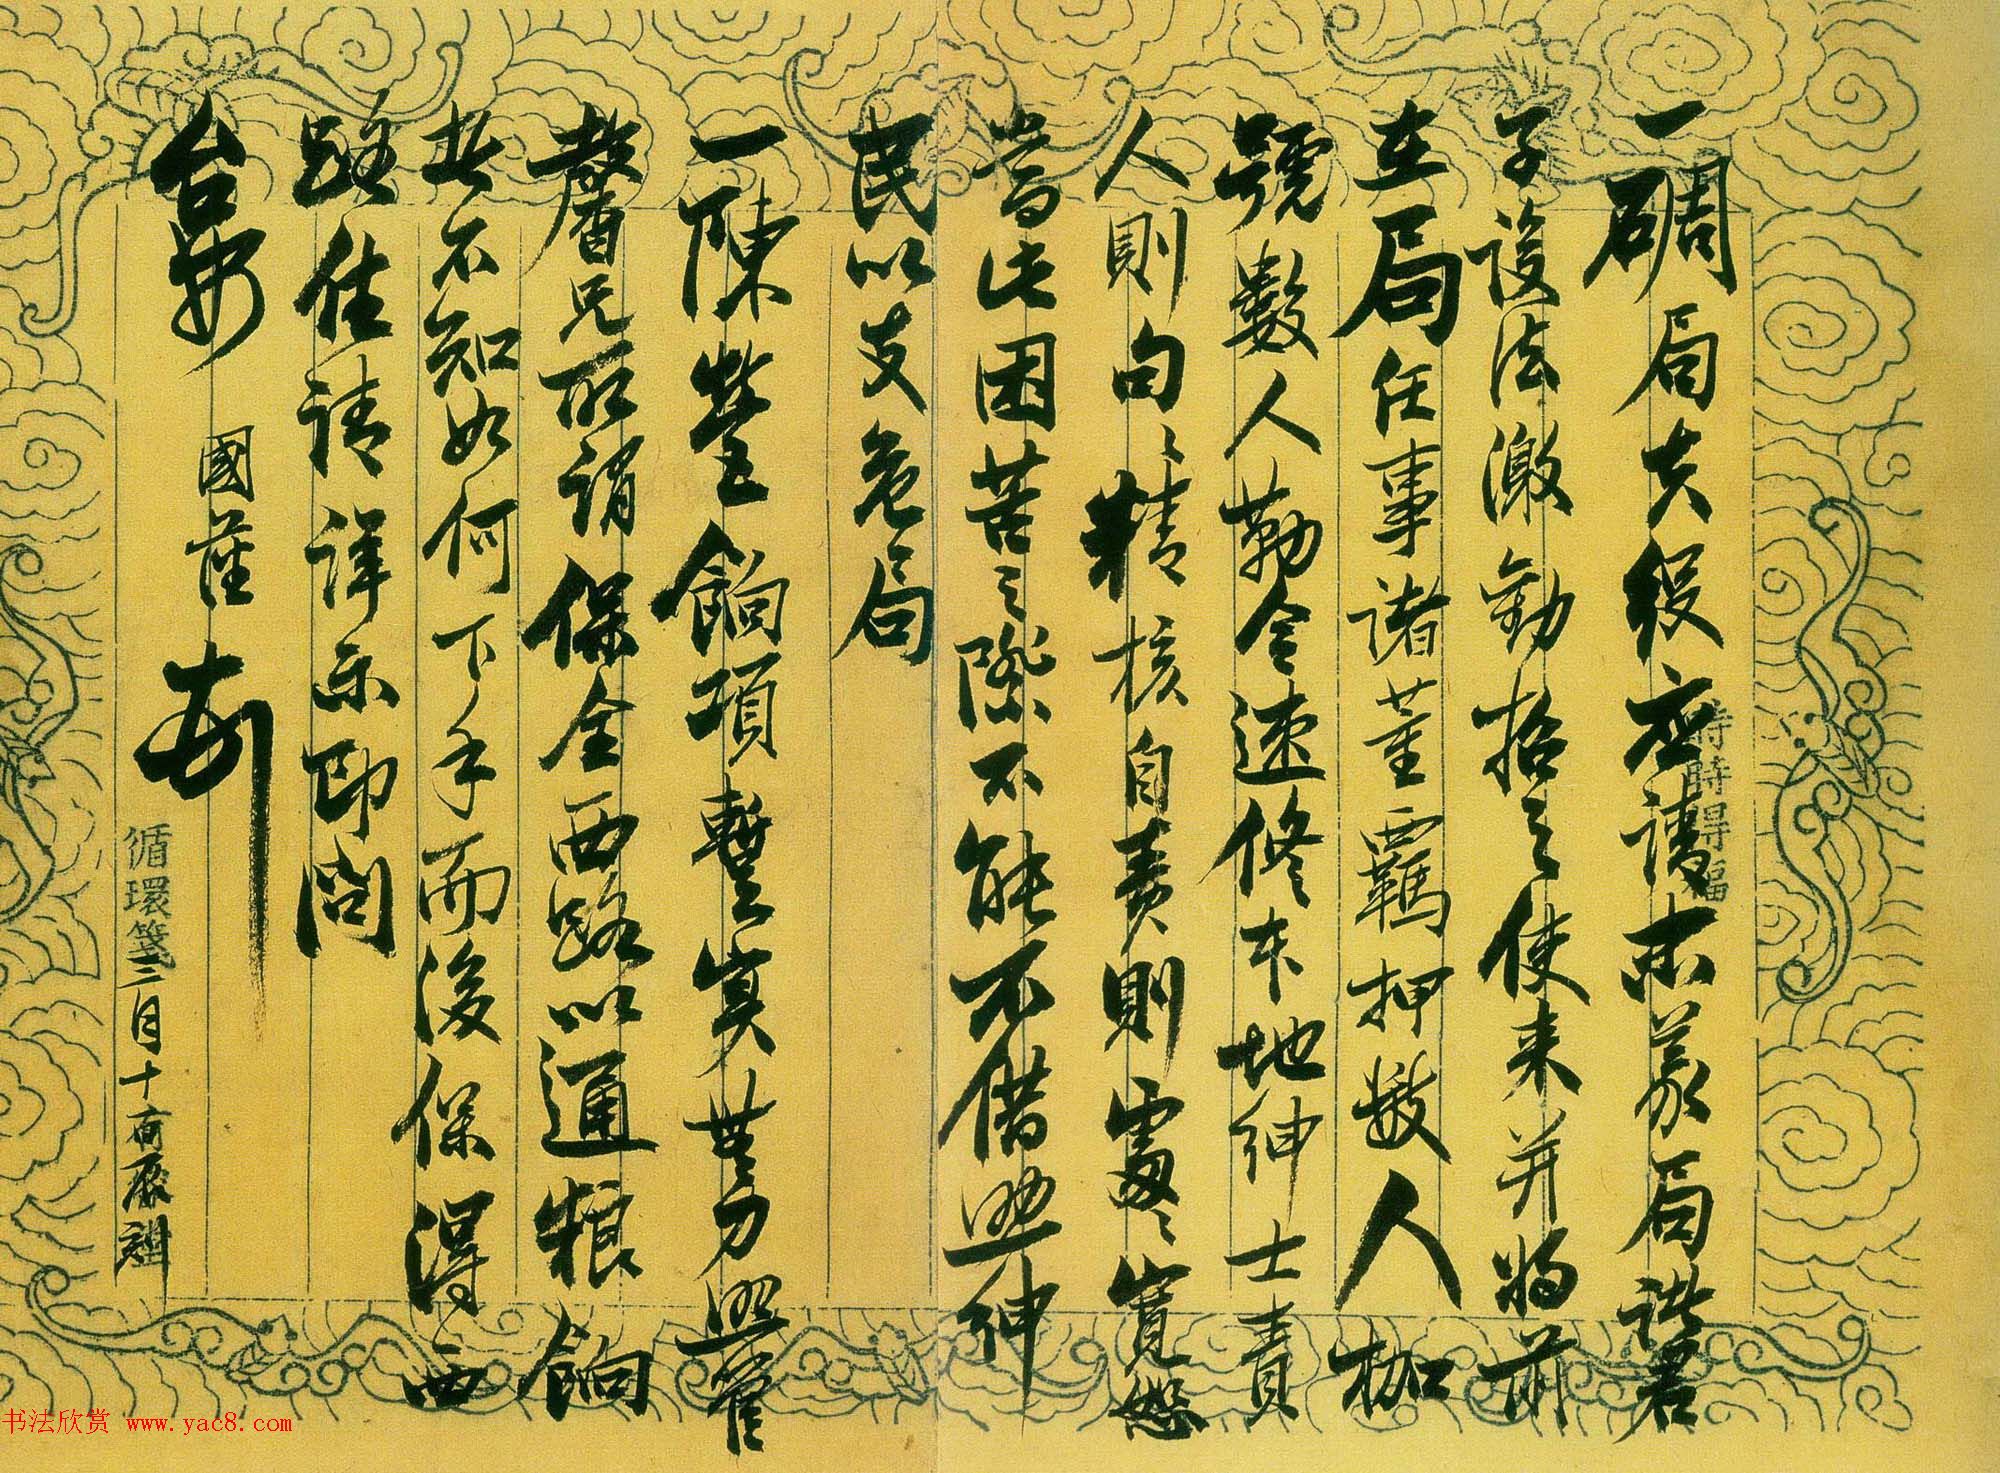 一碉局夫役应請末蒙局諸君
子設法激勸招之使来并將前
在局任事諸董羈押數人枷
號數人勒令速修本地紳士責
人則句句精核自責則處處寬恕
當此困苦之際不能不借興紳
民以支危局
一陳營餉項暫實無力興管
馨兄所謂保全西路以通粮餉
者不知如何下手而後保得西
路住請詳示即問
台安 國荃
循環箋
三月十
時時得福
书法欣赏 www.yac8.com